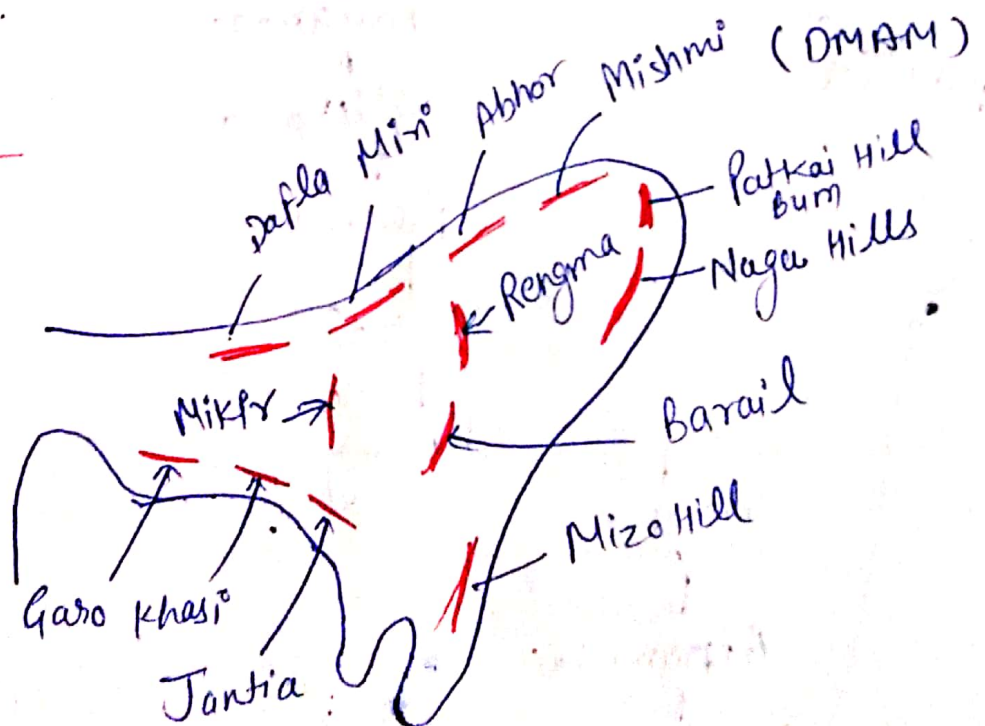 Dafla Miri Abhor Mishmi (DMAM)
Patkai Hill
Bum
Rengma
Naga Hills
Mikir
Barail
Mizo Hill
Garo Khasi
Jantia